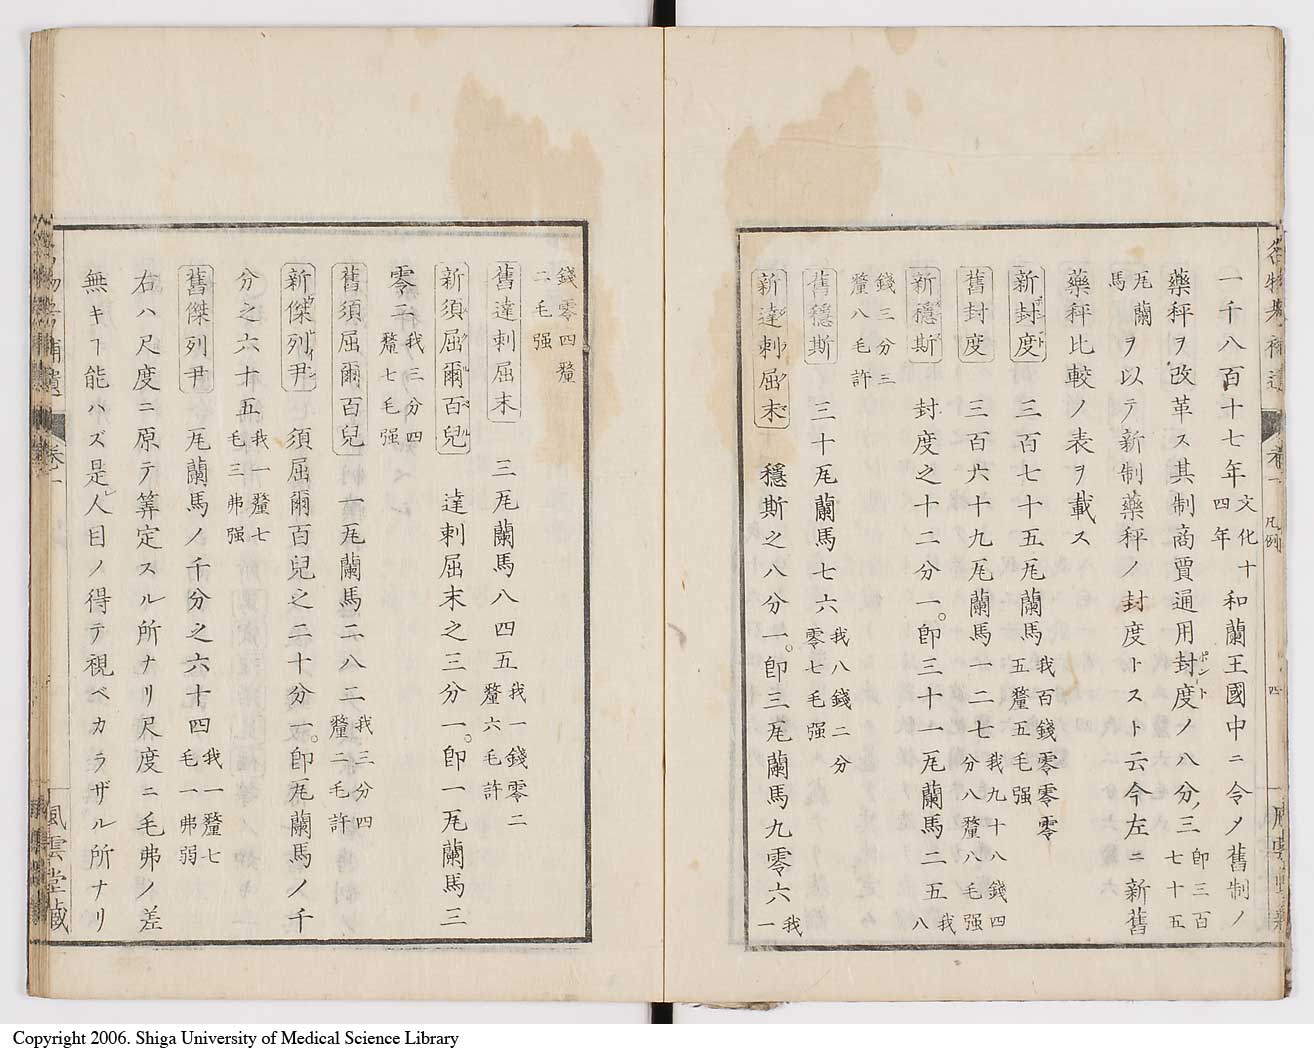 一千八百十七年文化十四年和蘭王國中ニ令メ舊制ノ
藥秤ヲ改革ス其制商賈通用封度ポントノ八分ノ三即三百七十五
瓦蘭馬ヲ以テ新制藥秤ノ封度トスト云今左ニ新舊
藥秤比較ノ表ヲ載ス
新封度ポンド 三百七十五瓦蘭馬我百錢零零零五釐五毛强
舊封度 三百六十九瓦蘭馬一二七我九十八錢四分八釐八毛强
新穩斯 封度之十二分一。即三十一瓦蘭馬二五我八
錢三分三釐八毛許
舊穩斯 三十瓦蘭馬七六我八錢二分零七毛强
新達刺屈末 穩斯之八分一。即三瓦蘭馬九零六我一
錢零四釐二毛强
舊達刺屈末 三瓦蘭馬八四五我一錢零二釐六毛許
新須屈爾百兒 達刺屈末之三分一。即一瓦蘭馬三
零二我三分四釐七毛强
舊須屈爾百兒 一瓦蘭馬二八二我三分四釐二毛許
新傑列尹 須屈爾百兒之二十分一。即瓦蘭馬ノ千
分之六十五我一釐七毛三弗强
舊傑列尹 瓦蘭馬ノ千分之六十四我一釐七毛一弗弱
右ハ尺度ニ原テ筭定スル所ナリ尺度ニ毛弗ノ差
無キヿ能ハズ是人目ノ得テ視ベカラザル所ナリ
卷一 凡例
四
卷一
風雲堂藏
Copyright 2006. Shiga University of Medical Science Library